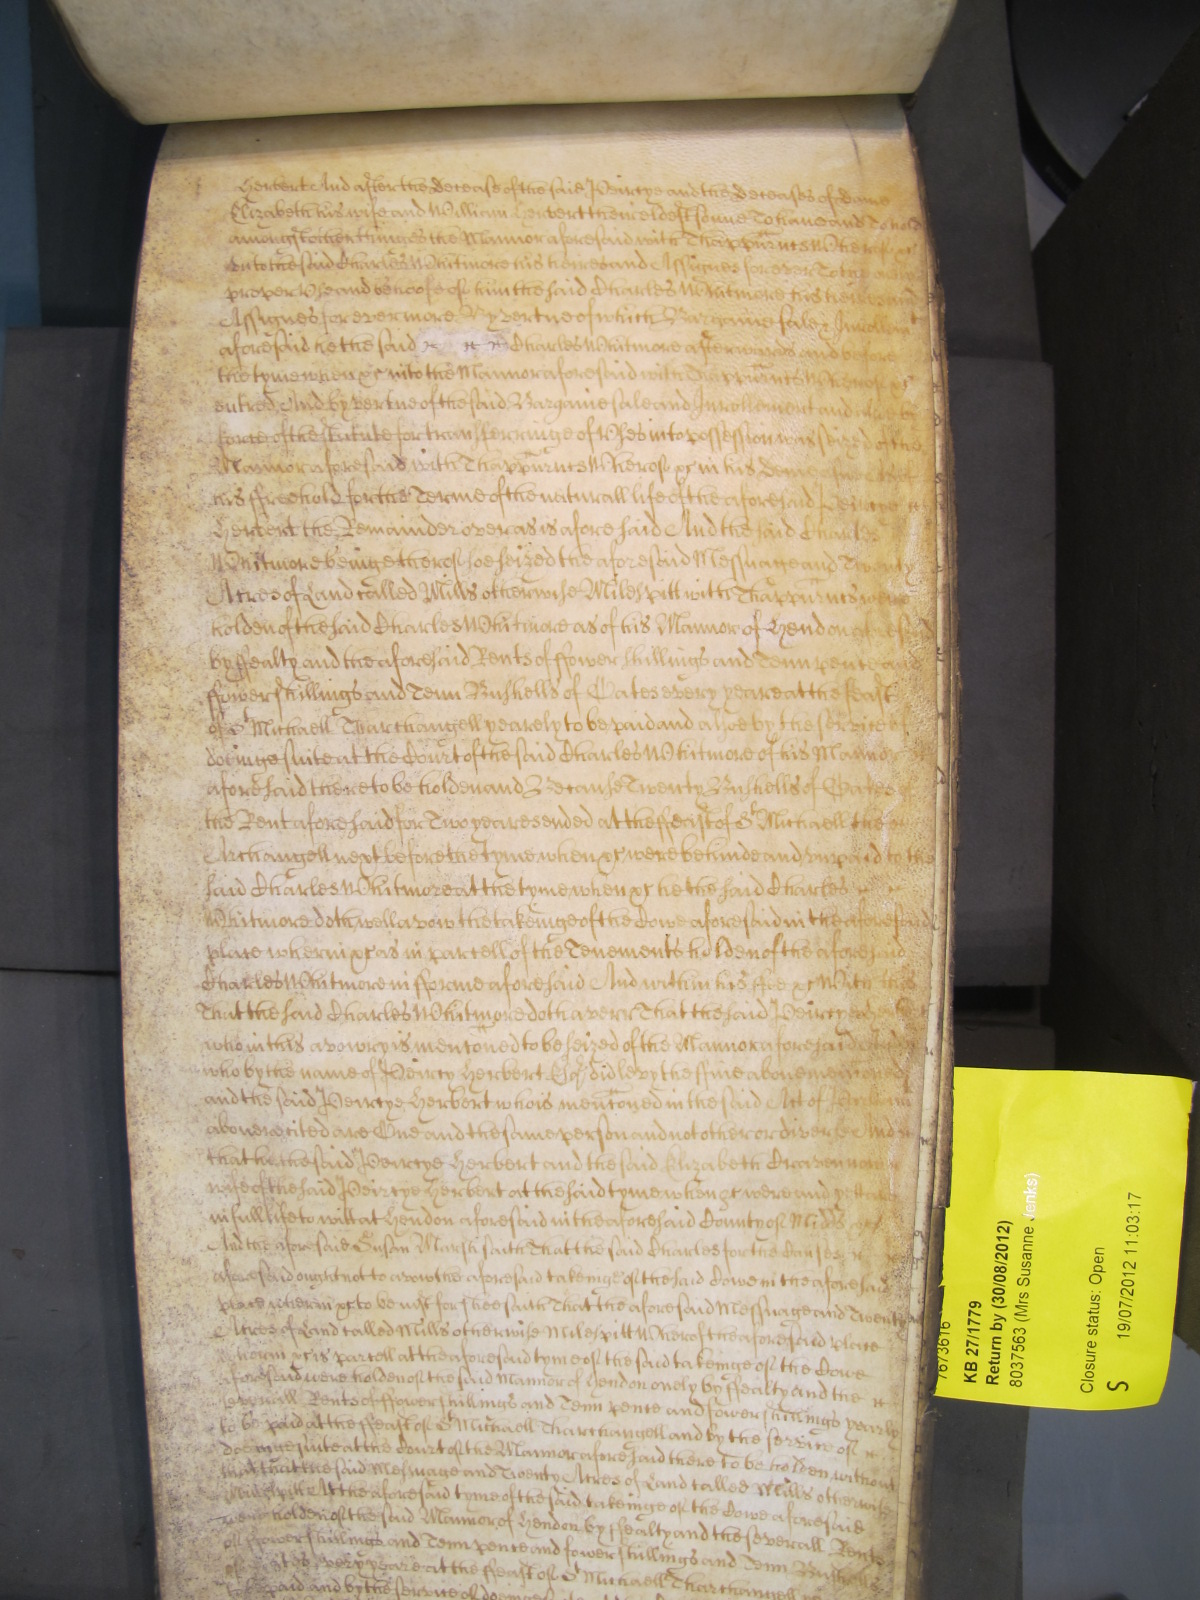 Herbert And after the decease of the said Peircye and the deceases of dame
Elizabeth his wife and William Herbert theire eldest sonne To have and To hold
amongst other thinges the Mannor aforesaid with Thappurtenncs Whereof &c
unto the said Charles Whitmore his heires and Assignes for ever To the onely
proper Use and behoofe of him the said Charles Whitmore his heires and
Assignes for evermore By vertue of which Bargaine sale & Inrollemt
aforesaid he the said Charles Whitmore afterwards and before
the tyme when &c into the Mannor aforesaid with Thappurtnncs Whereof &c
entred And by vertue of the said Bargaine sale and Inrollement and alsoe by
force of the statute for transferringe of Uses into possession was seized of the
Mannor aforesaid with Thappurtnncs Whereof &c in his demesne as of
his ffreehold for the Terme of the naturall life of the aforesaid Peircye
Herbert the Remainder over as is aforesaid And the said Charles
Whitmore beinge thereof soe seized the aforesaid Messuage and Twenty
Acres of Land called Mills otherwise Milespitt with Thappurtnncs were
holden of the said Charles Whitmore as of his Mannor of Hendon aforesaid
by ffealty and the aforesaid Rents of ffower shillings and Tenn pence and
ffower shillings and Tenn Bushells of Oates every yeare at the feast
of St Michaell Tharchangell yearely to be paid and alsoe by the service of
doeinge suite at the Court of the said Charles Whitmore of his Mannor
aforesaid there to be holden And Because Twenty Bushells of Oates of
the Rent aforesaid for Two yeares ended at the ffeast of St Michaell the
Archangell next before the tyme when &c were behinde and unpaid to the
said Charles Whitmore at the tyme when &c he the said Charles
Whitmore doth well avow the takeinge of the Cowe aforesaid in the aforesaid
place wherein &c as in parcell of the Tenements holden of the aforesaid
Charles Whitmore in fforme aforesaid And within his ffee &c With this
That the said Charles Whitmore doth averr That the said Peircye Herbert
who in this avowry is mentoned to be seized of the Mannor aforesaid and
who by the name of Peircy Herbert Esqr did levy the ffine above mentioned
and the said Peircye Herbert who is mentoned in the said Act of Parliamt
above recited are One and the same person and not other or diverse And
that he the said Peircye Herbert and the said Elizabeth Craven now
wife of the said Peircye Herbert at the said tyme when &c were and yett are
in full life to witt at Hendon aforesaid in the aforesaid County of Midds
And the aforesaid Susan Marsh saith That the said Charles for the Causes
aforesaid ought not to avow the aforesaid takeinge of the said Cowe in the aforesaid
place wherein &c to be iust for shee saith That the aforesaid Messuage and Twenty
Acres of Land called Mills otherwise Milespitt Whereof the aforesaid place
wherein &c is parcell at the aforesaid tyme of the said takeinge of the Cowe
aforesaid were holden of the said Mannor of Hendon onely by ffealty and the
severall Rents of ffower shillings and Tenn pence and fower shillings yearly
to be paid at the ffeast of St Michaell Tharchangell and by the service of
doeinge suite at the Court of the Mannor aforesaid there to be holden without
that that the said Messuage and Twenty Acres of Land called Mills otherwise
Milespitt At the aforesaid tyme of the said takeinge of the Cowe aforesaid
were holden of the said Mannor of Hendon by ffealty and the severall Rents
of ffower shillings and Tenn pence and fower shillings and Tenn Bushells
of Oates every yeare at the ffeast of St Michaell Tharchangell
to be paid and by the service of doeinge suite
7673616
KB 27/1779
Return by (30/08/2012)
8037563 (Mrs Susanne Jenks)
Closure status: Open
S 19/07/2012 11:03:17